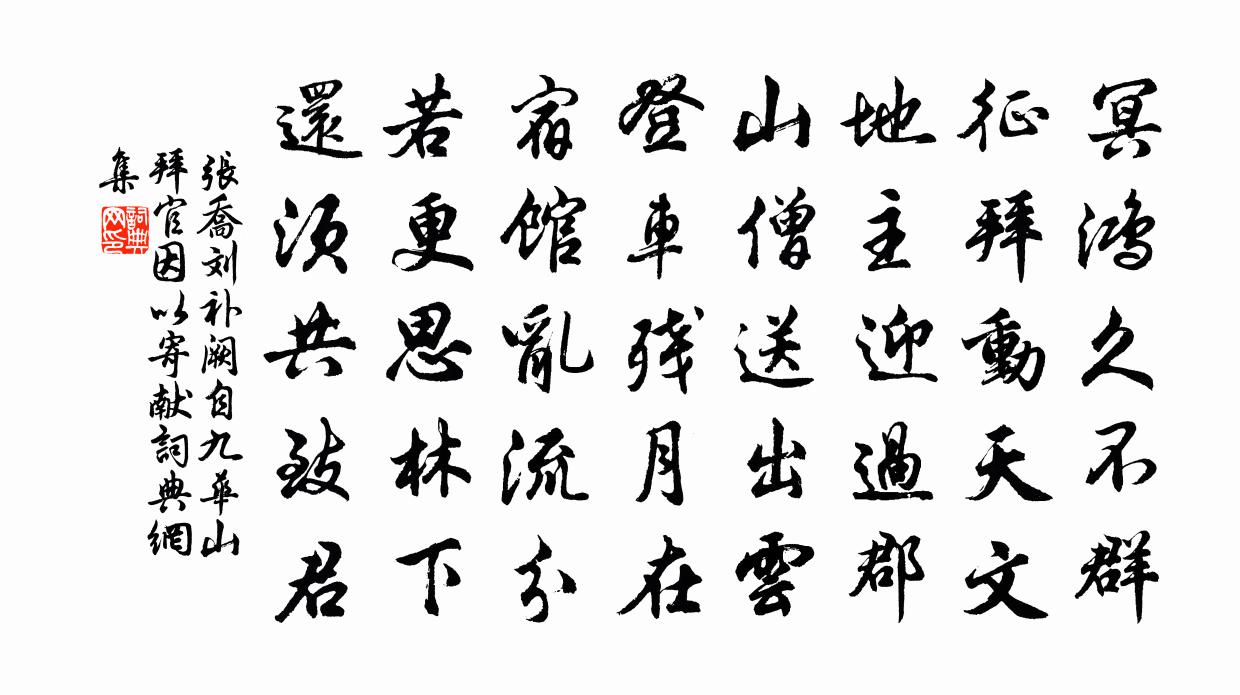 冥鴻久不群
征拜動天文
地主迎過郡
山僧送出雲
登車残月在
宿館亂流分
若更思林下
還須共致君
張喬刘补阙自九華山
拜官因以寄献詞典網
集
詞典網印